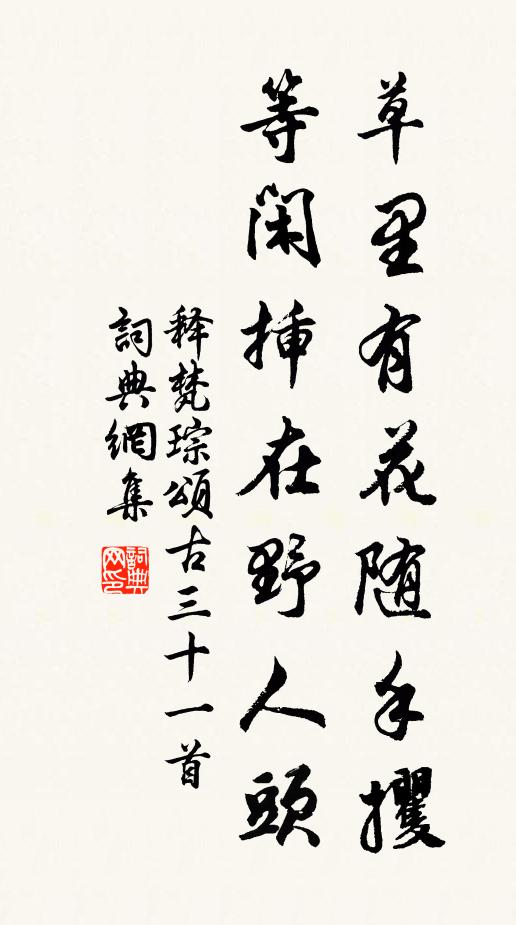 草里有花随手攫
等闲挿在野人頭
释梵琮頌古三十一首
詞典網集
詞典网印